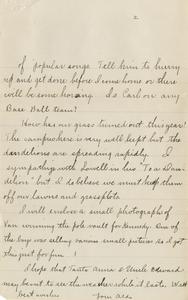 2.
of popular songs. Tell him to hurry
up and get done before I come home or there
will be some horang. Is Carl on any
Base Ball team?
How has our grass turned out this year?
The campus here is very well kept but the
dandelions are spreading rapidly. I
sympathy with Lowell in his "To a Dan-
delion" but I do believe we must keep them
off our lawns and grassplots.
I will enclose a small photograph of
Van winning the pole vault for Kennedy. One of
the boys was selling various small pictures so I got
this just for fun!
I hope that Tante Anna & Uncle Edward
may be out to see the weather while it lasts. With
Best wishes your